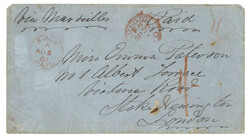 Via Marseilles Paid
Miss Emma Paterson
No 1 Albert Terrace
Victoria Road
Stoke Newington
London